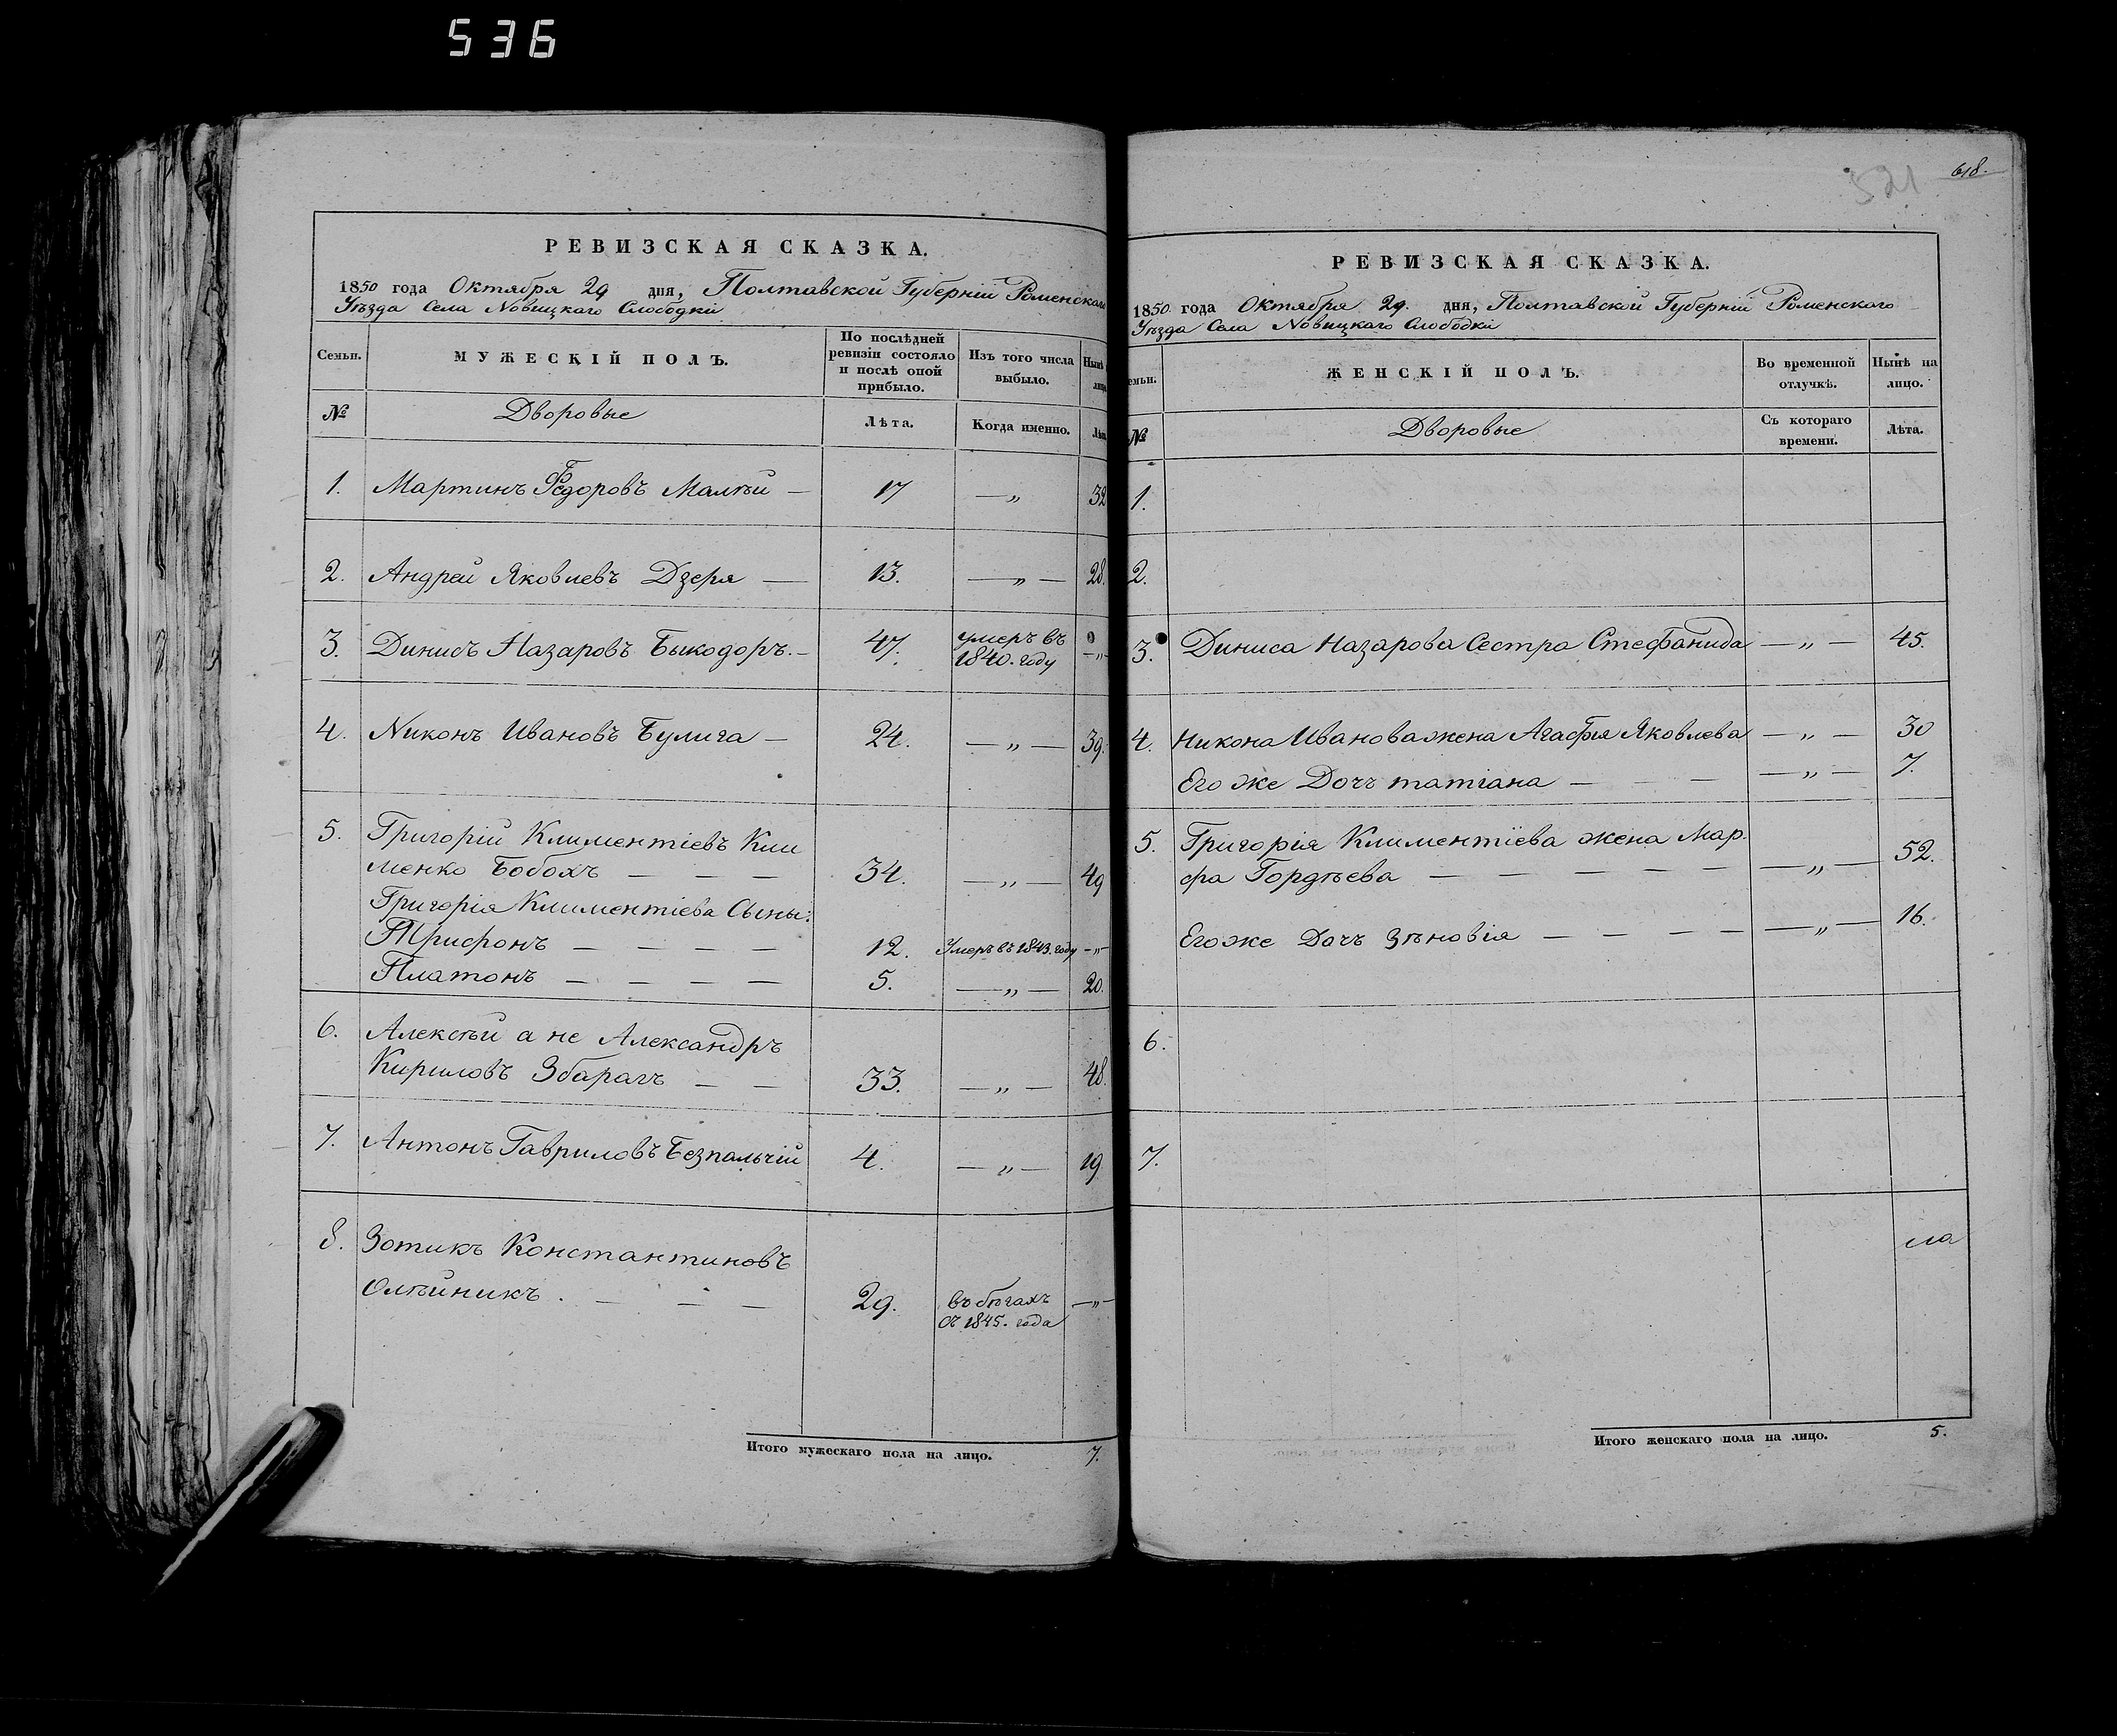 536
РЕВИЗСКАЯ СКАЗКА.
1850 года Октября 29 дня, Полтавской Губерніи Роменскаго
Уѣзда Села Новицкаго Слободки
Семьи.
МУЖЕСКІЙ ПОЛЪ.
По послѣдней ревизіи состояло и послѣ оной прибыло.
Изъ того числа выбыло.
Нынѣ лицо
№
Дворовые
Лѣта.
Когда именно.
Лѣта
1. Мартинъ Федоровъ Малѣй — 17 —„ 32
2. Андрей Яковлевъ Дзеря — 13. —„— 28.
3. Динисъ Назаровъ Быкодоръ.— 47. умеръ въ 1840. году —„—
4. Никонъ Ивановъ Булига — 24. —„— 39.
5. Григорій Климентіевъ Кли
менко Бобохъ — — — 34. —„— 49
Григорія Климентіева Сыны:
Трифонъ — — — — 12. Умеръ въ 1843. году —„—
Платонъ — — — — 5. —„— 20.
6. Алексѣй а не Александръ
Кириловъ Збарагъ — — 33. —„— 48.
7. Антонъ Гавриловъ Безпальчій 4. —„— 19
8. Зотикъ Константиновъ
Олѣйникъ . — — — 29. въ бѣгахъ съ 1845. года —„—
Итого мужескаго пола на лицо. 7.
521
618.
РЕВИЗСКАЯ СКАЗКА.
1850 года Октября 29. дня, Полтавской Губерніи Роменскаго
Уѣзда Села Новицкаго Слободки
емьи.
ЖЕНСКІЙ ПОЛЪ.
Во временной отлучкѣ.
Нынѣ на лицо.
№
Дворовые
Съ котораго времени.
Лѣта.
1.
2.
3. Диниса Назарова Сестра Стефанида —„— 45.
4. Никона Иванова жена Агафія Яковлева —„— 30
Его же Дочъ татіана — — —„— 7.
5. Григорія Климентіева жена Мар.
фа Гордѣева — — — — — —„— 52.
Его же Дочъ Зѣновія — — — — —„— 16.
6.
7.
Итого женскаго пола на лицо. 5.